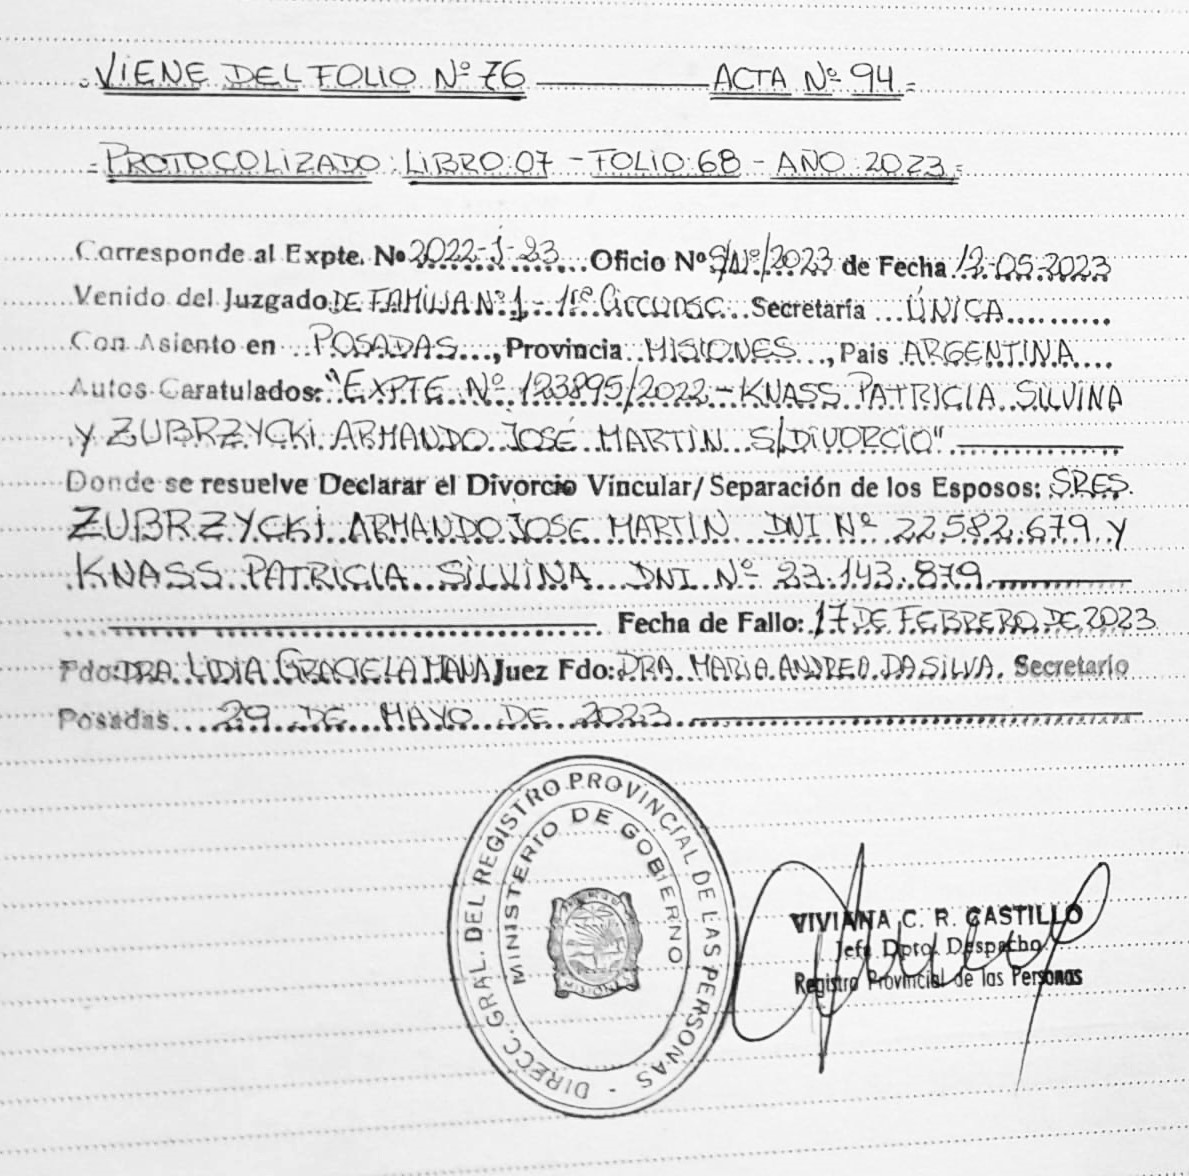 VIENE DEL FOLIO Nº 76 ACTA Nº 94
PROTOCOLIZADO: LIBRO: 07 - FOLIO: 68 - AÑO: 2023
Corresponde al Expte. Nº 2022-1-23 Oficio Nº S/Nº/2023 de Fecha 12-05-2023
Venido del Juzgado DE FAMILIA Nº 1 - 1ra Circunsc. Secretaría ÚNICA
Con Asiento en POSADAS, Provincia MISIONES, Pais ARGENTINA
Autos Caratulados: "EXPTE Nº 123895/2022 - KNASS PATRICIA SILVINA
y ZUBRZYCKI ARMANDO JOSÉ MARTIN S/DIVORCIO"
Donde se resuelve Declarar el Divorcio Vincular/Separación de los Esposos: SRES.
ZUBRZYCKI ARMANDO JOSE MARTIN DNI Nº 22.582.679 y
KNASS PATRICIA SILVINA DNI Nº 23.143.879
Fecha de Fallo: 17 DE FEBRERO DE 2023
Fdo: DRA. LIDIA GRACIELA Juez Fdo: DRA. MARIA ANDREA DA SILVA. Secretario
Posadas 29 DE MAYO DE 2023
DIRECC. GRAL. DEL REGISTRO PROVINCIAL DE LAS PERSONAS
MINISTERIO DE GOBIERNO
MISIONES
VIVIANA C. R. CASTILLO
Jefe Dpto. Despacho
Registro Provincial de las Personas